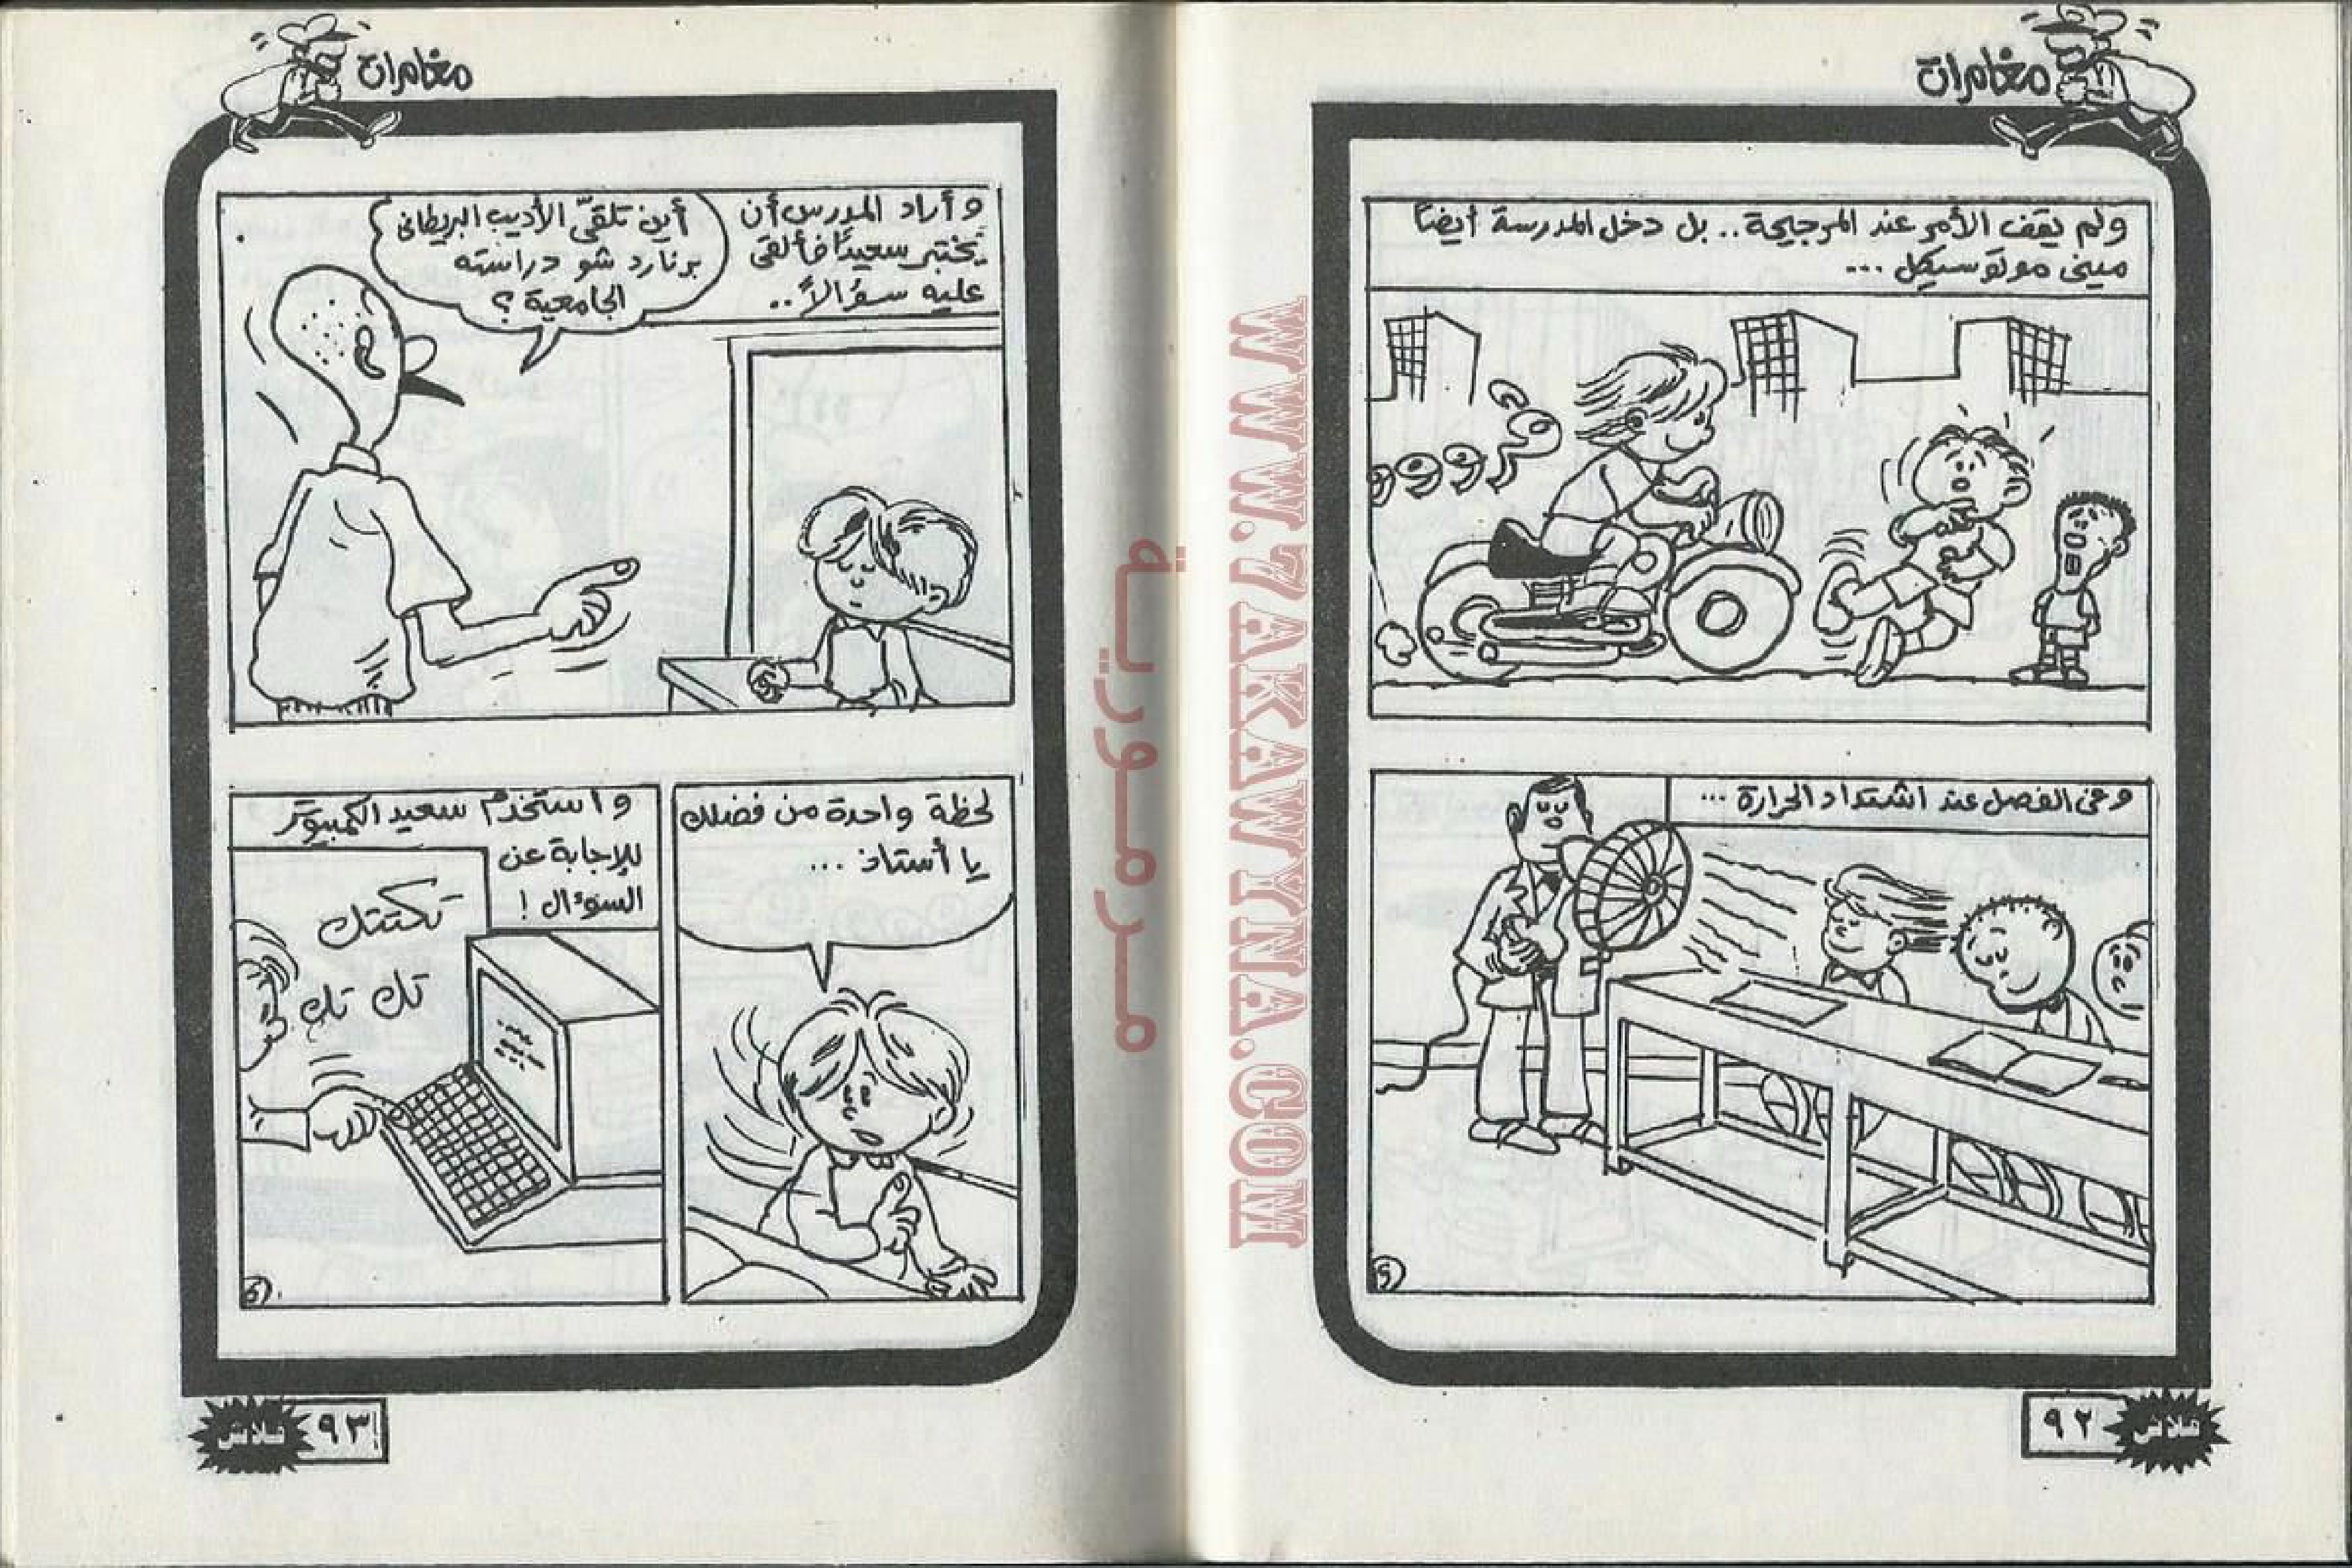 مغامرات
ولم يقف الأمر عند المرجيحة.. بل دخل المدرسة أيضاً
مينى موتوسيكل ...
وفى الفصل عند اشتداد الحرارة ...
٩٢
فلاش
مغامرات
وأراد المدرس أن
يختبر سعيدًا فألقى
عليه سؤالاً..
أين تلقّى الأديب البريطانى
برنارد شو دراسته
الجامعية ؟
لحظة واحدة من فضلك
يا أستاذ ...
واستخدم سعيد الكمبيوتر
للإجابة عن
السؤال !
تكتتك
تك تك
٩٣
فلاش
مرمورية
WWW.7AKAWYNA.COM